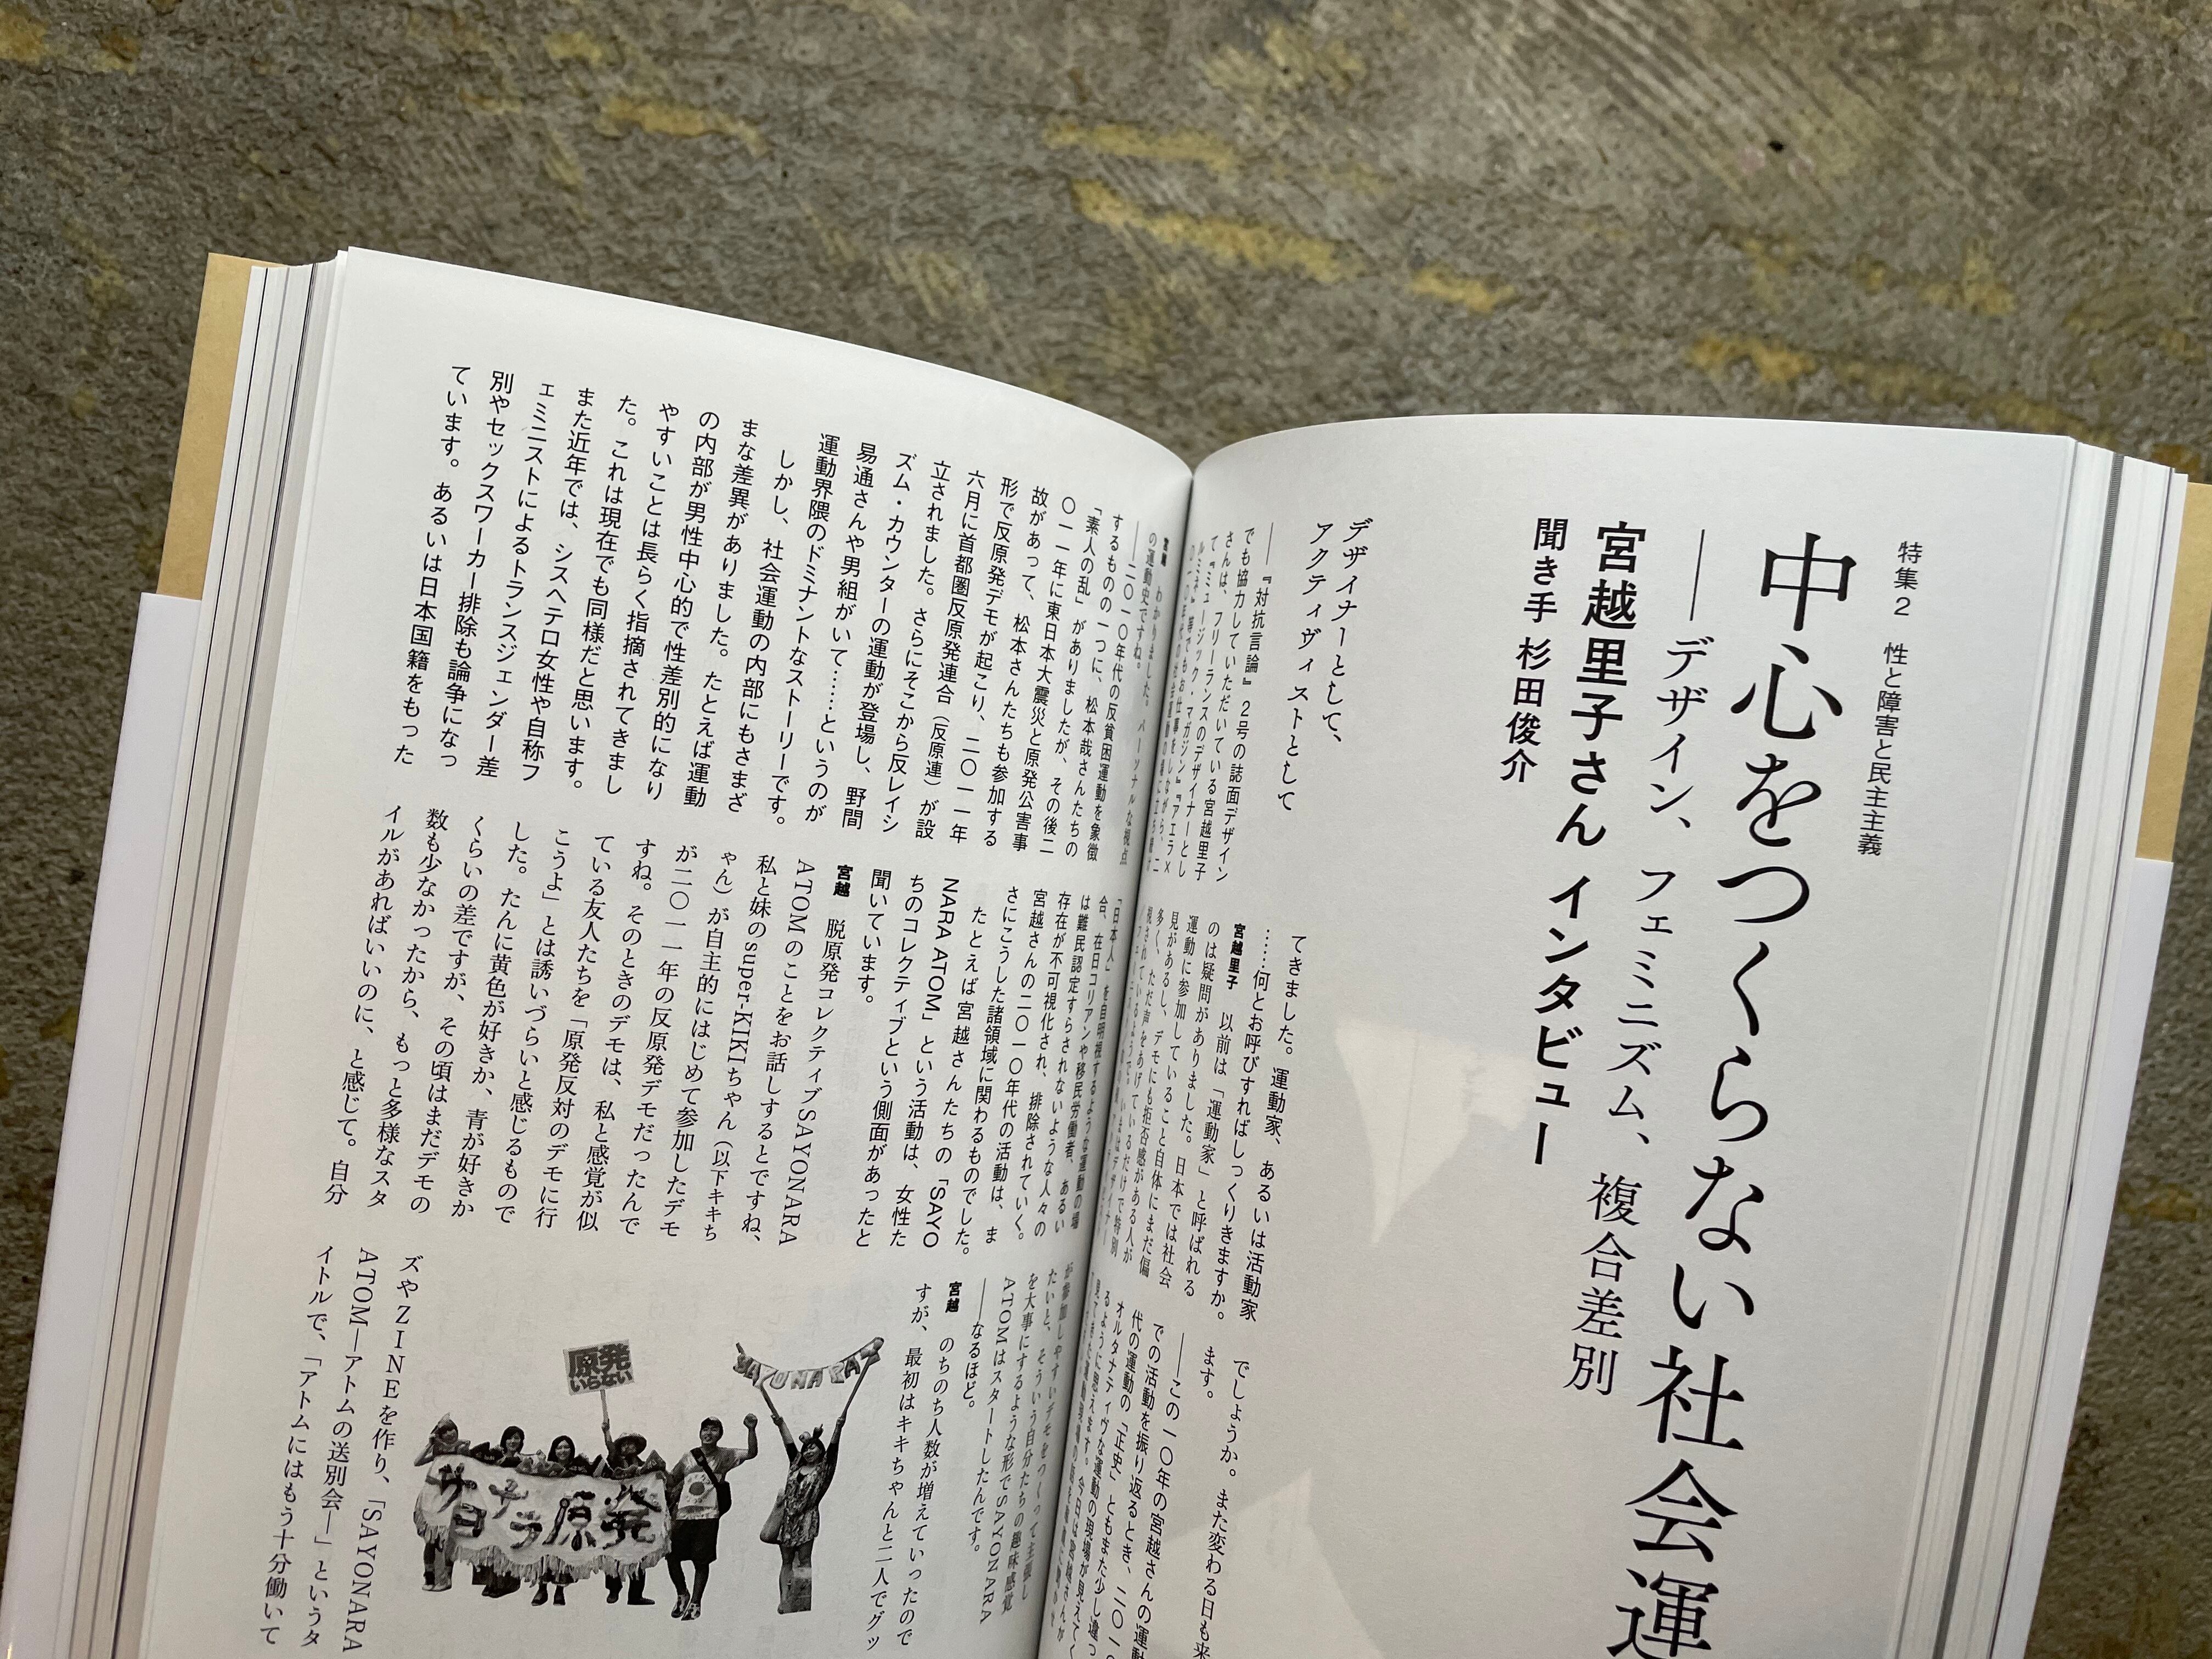 特集2　性と障害と民主主義
中心をつくらない社会運
――デザイン、フェミニズム、複合差別
宮越里子さん インタビュー
聞き手 杉田俊介
デザイナーとして、
アクティヴィストとして
――『対抗言論』2号の誌面デザイン
でも協力していただいている宮越里子
さんは、フリーランスのデザイナーとし
て『ミュージック・マガジン』『アエラ×
てきました。運動家、あるいは活動家
……何とお呼びすればしっくりきますか。
宮越里子　以前は「運動家」と呼ばれる
のは疑問がありました。日本では社会
運動に参加していること自体にまだ偏
見があるし、デモにも拒否感がある人が
多く、ただ声をあげているだけで特別
でしょうか。また変わる日も来
ます。
――この一〇年の宮越さんの運動
での活動を振り返るとき、二〇一〇
代の運動の「正史」ともまた少し違っ
オルタナティヴな運動の現場が見えてく
るように思えます。今日は宮越さんが
宮越　わかりました。パーソナルな視点
の運動史ですね。
――二〇一〇年代の反貧困運動を象徴
するものの一つに、松本哉さんたちの
「素人の乱」がありましたが、その後二
〇一一年に東日本大震災と原発公害事
故があって、松本さんたちも参加する
形で反原発デモが起こり、二〇一一年
六月に首都圏反原発連合（反原連）が設
立されました。さらにそこから反レイシ
ズム・カウンターの運動が登場し、野間
易通さんや男組がいて……というのが
運動界隈のドミナントなストーリーです。
しかし、社会運動の内部にもさまざ
まな差異がありました。たとえば運動
の内部が男性中心的で性差別的になり
やすいことは長らく指摘されてきまし
た。これは現在でも同様だと思います。
また近年では、シスヘテロ女性や自称フ
ェミニストによるトランスジェンダー差
別やセックスワーカー排除も論争になっ
ています。あるいは日本国籍をもった
「日本人」を自明視するような運動の場
合、在日コリアンや移民労働者、あるい
は難民認定すらされないような人々の
存在が不可視化され、排除されていく。
宮越さんの二〇一〇年代の活動は、ま
さにこうした諸領域に関わるものでした。
たとえば宮越さんたちの「SAYO
NARA ATOM」という活動は、女性た
ちのコレクティブという側面があったと
聞いています。
宮越　脱原発コレクティブSAYONARA
ATOMのことをお話しするとですね、
私と妹のsuper-KIKIちゃん（以下キキち
ゃん）が自主的にはじめて参加したデモ
が二〇一一年の反原発デモだったんで
すね。そのときのデモは、私と感覚が似
ている友人たちを「原発反対のデモに行
こうよ」とは誘いづらいと感じるもので
した。たんに黄色が好きか、青が好きか
くらいの差ですが、その頃はまだデモの
数も少なかったから、もっと多様なスタ
イルがあればいいのに、と感じて。自分
が参加しやすいデモをつくって主張し
たいと、そういう自分たちの趣味感覚
を大事にするような形でSAYONARA
ATOMはスタートしたんです。
――なるほど。
宮越　のちのち人数が増えていったので
すが、最初はキキちゃんと二人でグッ
SAYONARA
原発
いらない
サヨナラ原発
ズやZINEを作り、「SAYONARA
ATOM―アトムの送別会―」というタ
イトルで、「アトムにはもう十分働いて